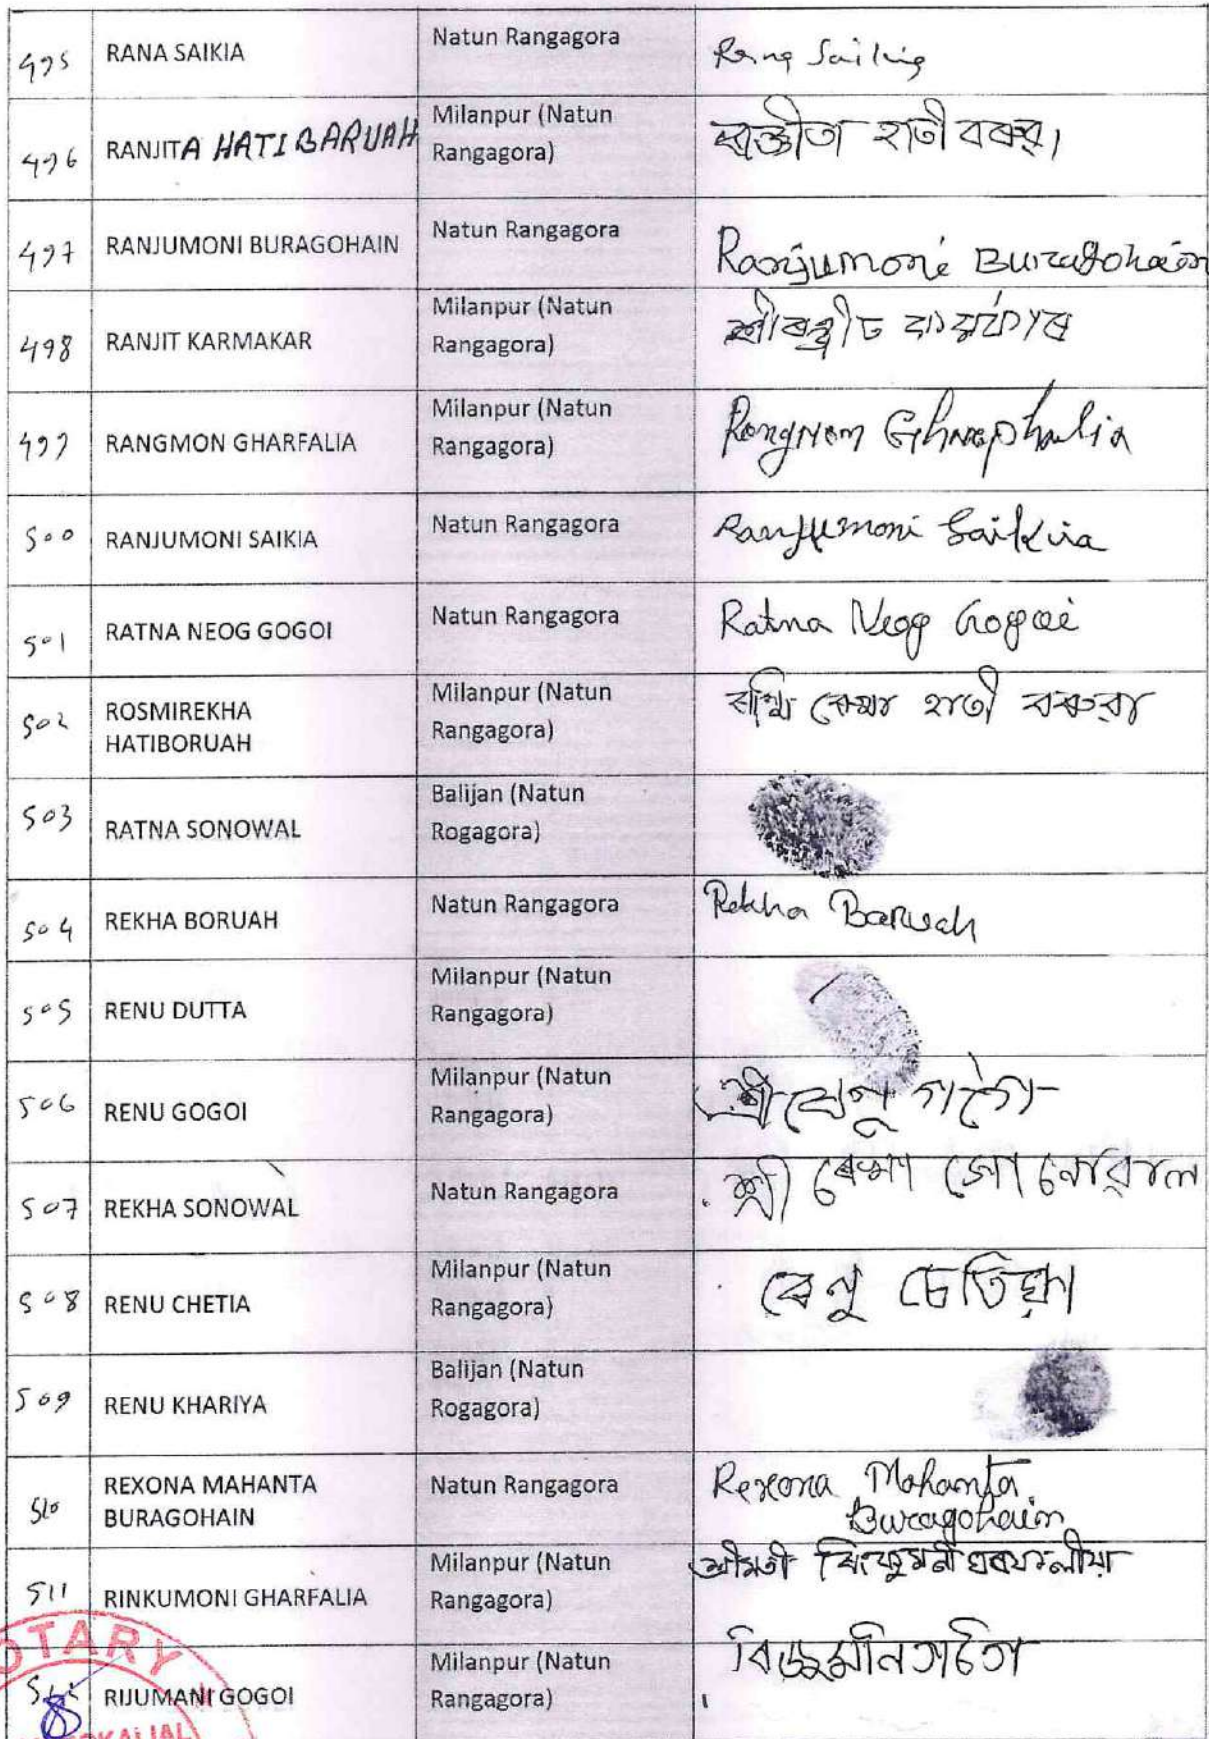 495 RANA SAIKIA Natun Rangagora Rana Saikia
496 RANJITA HATIBARUAH Milanpur (Natun
Rangagora) ৰঞ্জীতা হাতী বৰুৱা
497 RANJUMONI BURAGOHAIN Natun Rangagora Ranjumoni Buragohain
498 RANJIT KARMAKAR Milanpur (Natun
Rangagora) শ্ৰীৰঞ্জীত
499 RANGMON GHARFALIA Milanpur (Natun
Rangagora) Rongmon Gharphalia
500 RANJUMONI SAIKIA Natun Rangagora Ranjumoni Saikia
501 RATNA NEOG GOGOI Natun Rangagora Ratna Neog Gogoi
502 ROSMIREKHA
HATIBORUAH Milanpur (Natun
Rangagora) হাতী বৰুৱা
503 RATNA SONOWAL Balijan (Natun
Rogagora)
504 REKHA BORUAH Natun Rangagora Rekha Baruah
505 RENU DUTTA Milanpur (Natun
Rangagora)
506 RENU GOGOI Milanpur (Natun
Rangagora) শ্ৰী ৰেনু গগৈ
507 REKHA SONOWAL Natun Rangagora শ্ৰী ৰেখা সোনোৱাল
508 RENU CHETIA Milanpur (Natun
Rangagora) ৰেনু চেতিয়া
509 RENU KHARIYA Balijan (Natun
Rogagora)
510 REXONA MAHANTA
BURAGOHAIN Natun Rangagora Rexona Mahanta
Buragohain
511 RINKUMONI GHARFALIA Milanpur (Natun
Rangagora) শ্ৰীমতী ৰিংকুমনী ঘৰফলীয়া
RIJUMANI GOGOI Milanpur (Natun
Rangagora)
NOTARY